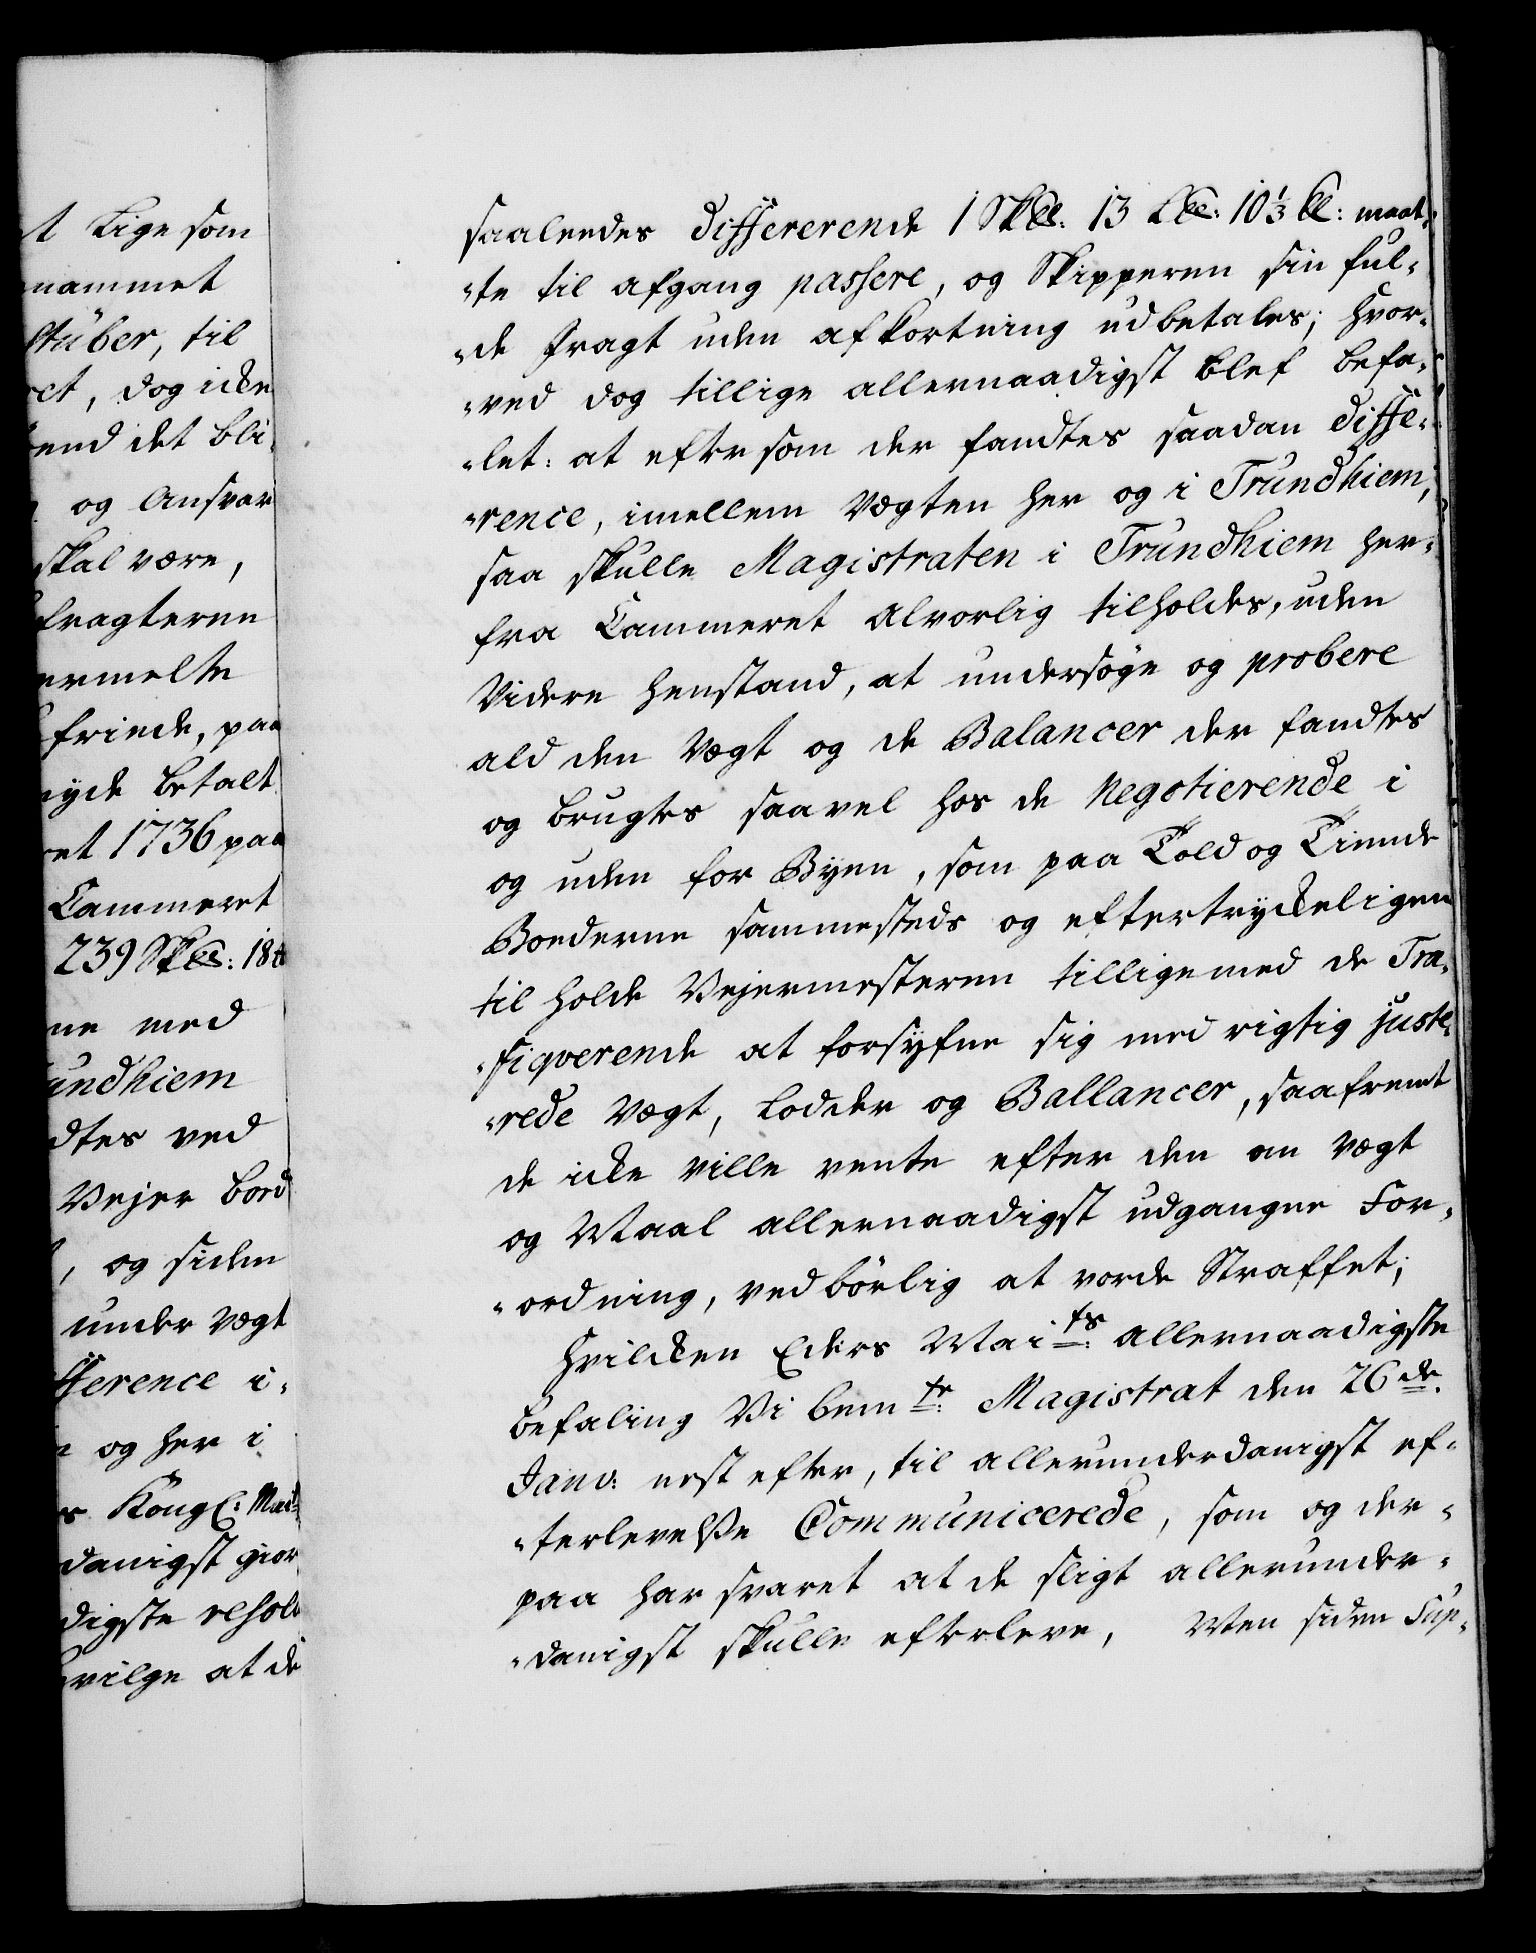 t Lige som
nammet
stüber, til
et, dog icke
end det bli-
og Ansvar
skal være,
fragteren
ermelte
friede, paa
nyde betalt
et 1736 paa
Cammeret
239 Sk℔: 18
ne med
undhiem
dtes ved
Vejer bord
, og siden
under Vægt
fference i-
og her i
s Kongl: Mait
danigst gior
digste resol
vilge at de
saaleedes differerende 1 Sk℔: 13 L℔: 10⅓ ℔: maat-
-te til afgang passere, og Skipperen sin ful-
-de fragt uden afkortning udbetales; hvor-
-ved dog tillige allernaadigst blef befa-
-let: at efter som der fandtes saadan diffe-
-rence, imellem Vægten her og i Trundhiem,
saa skulle Magistraten i Trundhiem her-
fra Cammeret alvorlig tilholdes, uden
Videre henstand, at undersøge og probere
ald den Vægt og de Balancer der fandtes
og brugtes saavel hos de Negotierende i
og uden for Byen, som paa Told og Tiende
Boederne sammesteds og eftertryckeligen
til holde Vejermesteren tilligemed de Tra-
-fiqverende at forsyfne sig med rigtig juste-
-rede Vægt, Lodder og Ballancer, saafremt
de icke ville vente efter den om Vægt
og Maal allernaadigst udgangne For-
-ordning, vedbørlig at vorde Straffet;
Hvilcken Eders Maits: allernaadigste
befaling Vi bemte: Magistrat den 26de.
Janv: nest efter, til allerunderdanigst ef-
-terlevelse Communicerede, som og der-
paa har svaret at de sligt allerunder-
-danigst skulle efterleve, Men siden Sup-